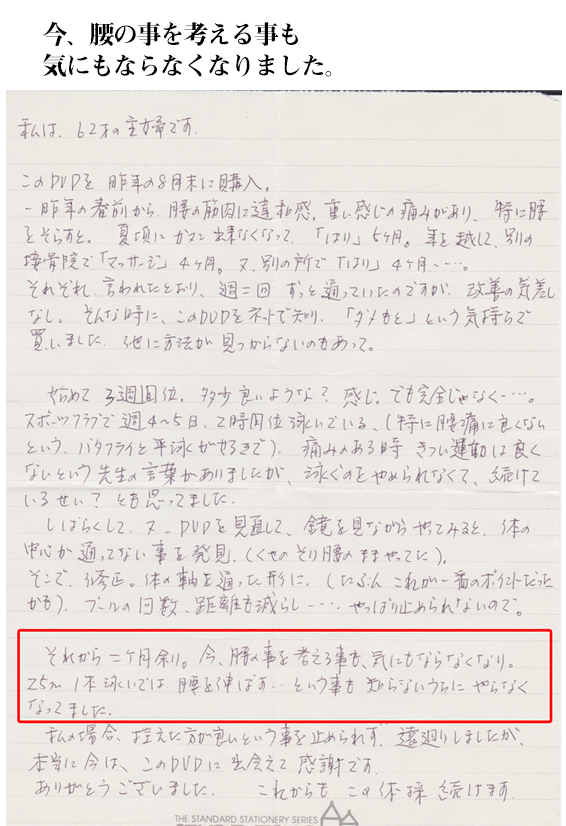 今、腰の事を考える事も
気にもならなくなりました。
私は、62才の主婦です。
このDVDを昨年の8月末に購入。
一昨年の春前から腰の筋肉に違和感。重い感じの痛みがあり、特に腰
をそらすと。夏頃にガマン出来なくなって、「はり」5ヶ月。年を越して、別の
接骨院で「マッサージ」4ヶ月。又、別の所で「はり」4ヶ月・・・。
それぞれ、言われたとおり、週二回 ずっと通っていたのですが、改善の気差し
なし。そんな時に、このDVDをネットで知り、「ダメもと」という気持ちで
買いました。他に方法が見つからないのもあって。
始めて3週間位。多少良いような?感じ。でも完全じゃなく・・・。
スポーツクラブで週4〜5日、2時間位泳いでいる、(特に腰痛に良くない
という、バタフライと平泳ぎが好きで)。痛みのある時 きつい運動は良く
ないという先生の言葉がありましたが、泳ぐのをやめられなくて、続けて
いるせい?とも思ってました。
しばらくして、又、DVDを見直して、鏡を見ながらやってみると、体の
中心が通ってない事を発見。(くせのそり腰のままやってた)。
そこで、修正。体の軸を通った形に。(たぶん これが一番のポイントだった
かも)。プールの回数、距離も減らし・・・・やっぱり止められないので。
それから二ヶ月余り。今、腰の事を考える事も、気にもならなくなり。
25m 1本泳いでは、腰を伸ばす・・という事も 知らないうちに やらなく
なってました。
私の場合、控えた方が良いという事を止められず、遠廻りしましたが、
本当に今は、このDVDに出会えて 感謝です。
ありがとうございました。 これからも この体操 続けます。
THE STANDARD STATIONERY SERIES